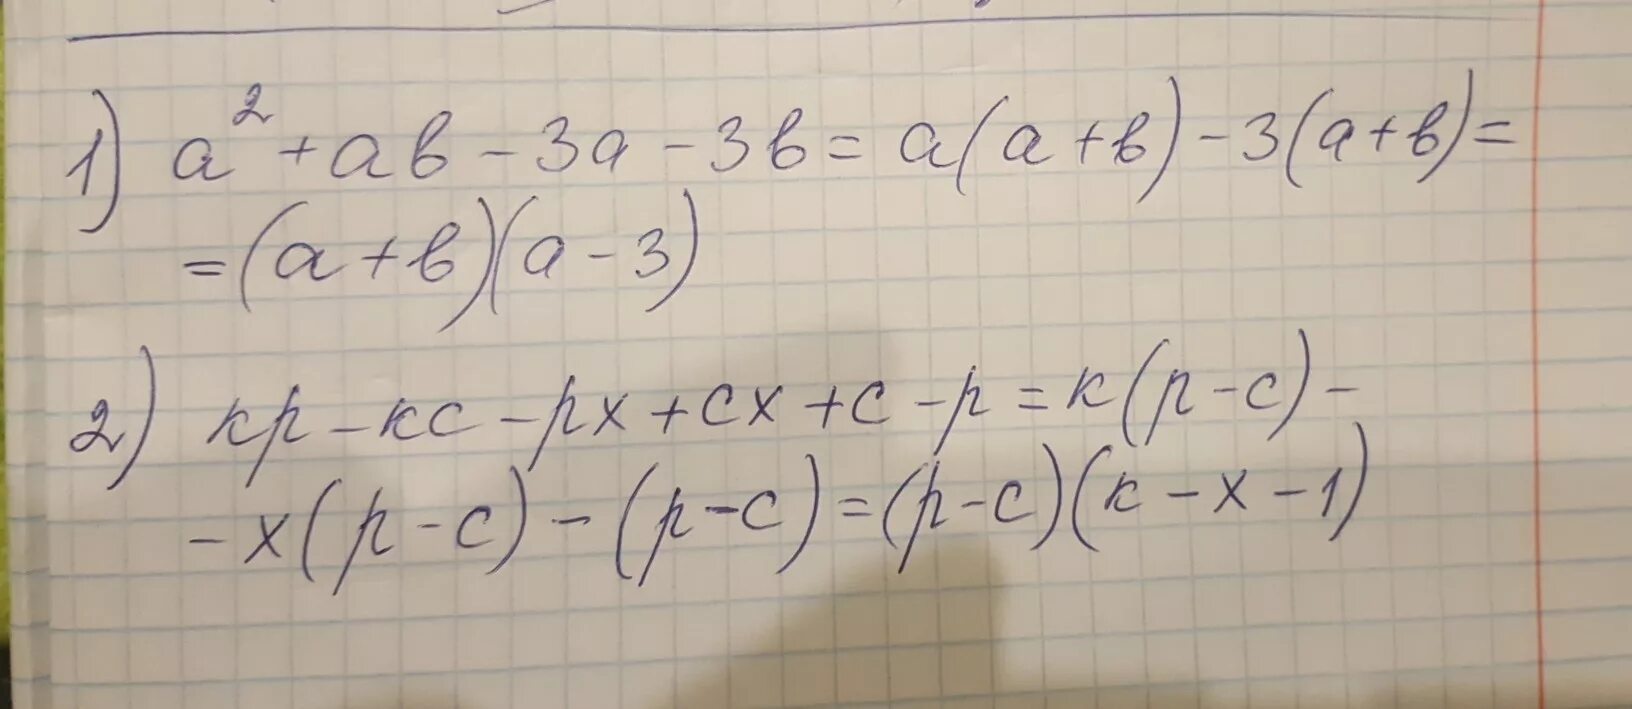 1) a² + ab - 3a - 3b = a(a+b) - 3(a+b) =
= (a+b)(a-3)
2) kp - kc - px + cx + c - p = k(p-c) -
- x(p-c) - (p-c) = (p-c)(k-x-1)